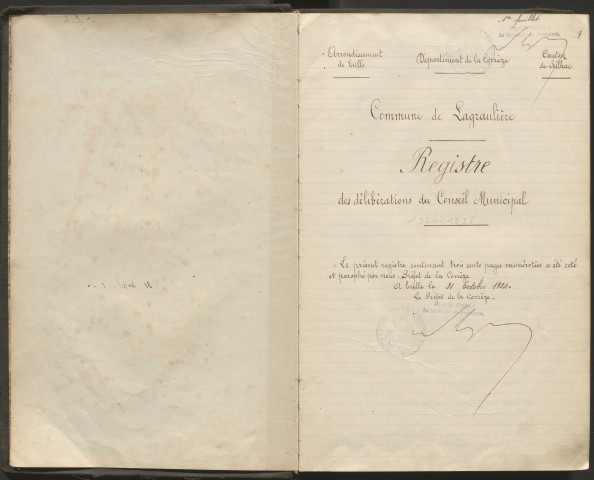 1er feuillet
Arrondissement
de Tulle
Département de la Corrèze
Canton
de Seilhac
Commune de Lagraulière
Registre
des délibérations du Conseil Municipal
Le présent registre contenant trois cents pages numérotées a été coté
et paraphé par nous, Préfet de la Corrèze.
A Tulle le 31 Octobre 1924.
Le Préfet de la Corrèze,